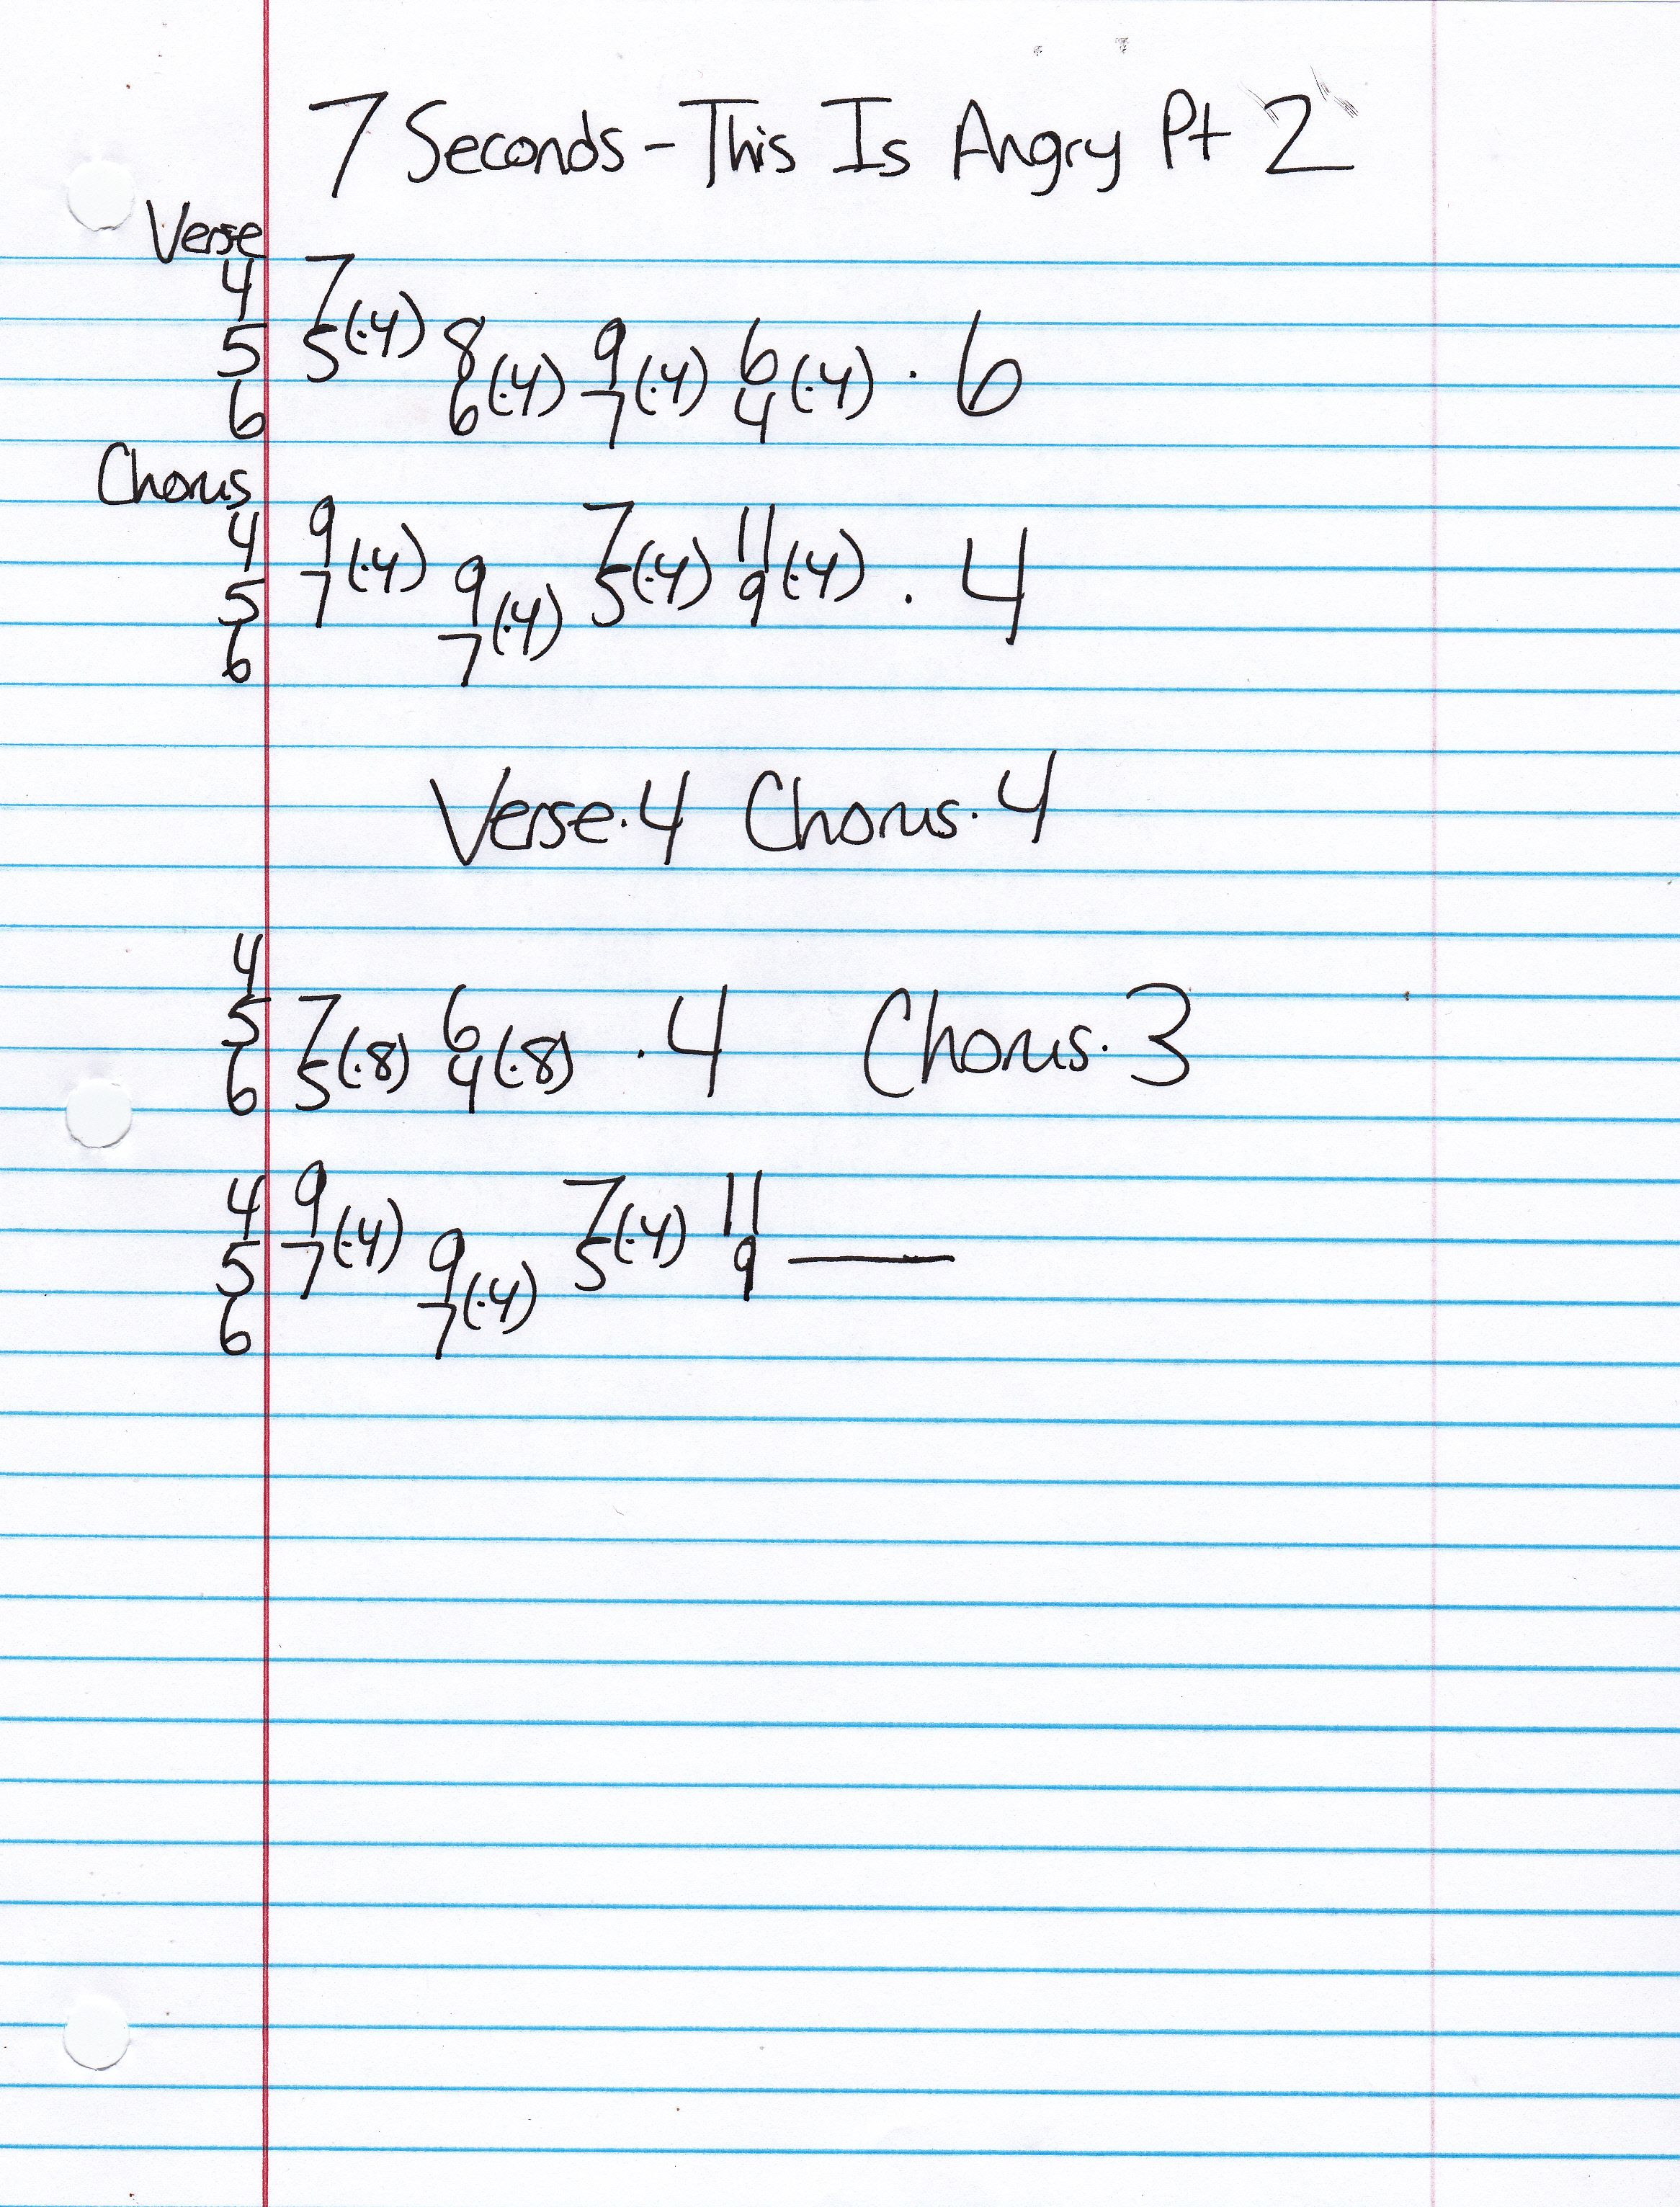 7 Seconds - This Is Angry Pt 2
Verse
4 7
5 5(·4) 8 9 6 · 6
6 6(·4) 7(·4) 4(·4)
Chorus
4 9 7 11
5 7(·4) 9 5(·4) 9(·4) · 4
6 7(·4)
Verse·4 Chorus·4
4
5 7 6 · 4 Chorus·3
6 5(·8) 4(·8)
4 9 7 11
5 7(·4) 9 5(·4) 9 —
6 7(·4)